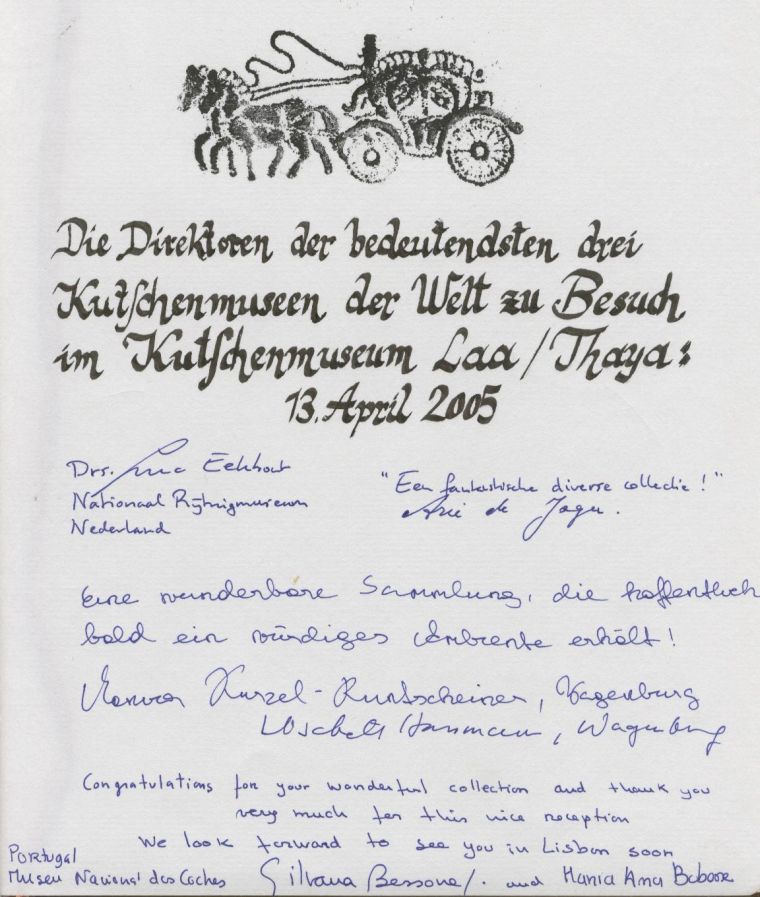 Die Direktoren der bedeutendsten drei
Kutschenmuseen der Welt zu Besuch
im Kutschenmuseum Laa/Thaya:
13. April 2005
Drs. Eekhout
Nationaal Rijtuigmuseum
Nederland
"Een fantastische diverse collectie!"
Arie de Jager.
Eine wunderbare Sammlung, die hoffentlich
bald ein würdiges Ambiente erhält!
Monica Kurzel-Runtscheiner, Wagenburg
Hausmann, Wagenburg
Congratulations for your wonderful collection and thank you
very much for this nice reception
We look forward to see you in Lisbon soon
Portugal
Museu Nacional dos Coches Silvana Bessone/. and Maria Ana